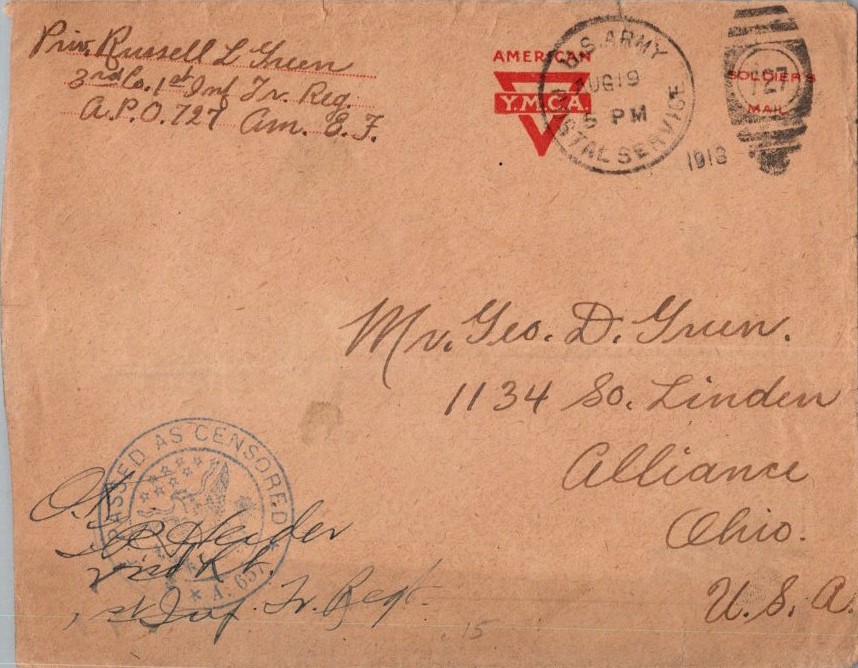 Priv. Russell L Green
3rd Co. 1st Inf Tr. Reg.
A.P.O. 727 Am. E. F.
AMERICAN
Y.M.C.A.
U.S. ARMY
AUG 19
5 PM
POSTAL SERVICE
1918
SOLDIER'S
727
MAIL
Mr. Geo. D. Green.
1134 So. Linden
Alliance
Ohio.
U.S.A.
PASSED AS CENSORED
A. 657
O.K.
Heider
2nd Lt.
1st Inf. Tr. Regt.
15